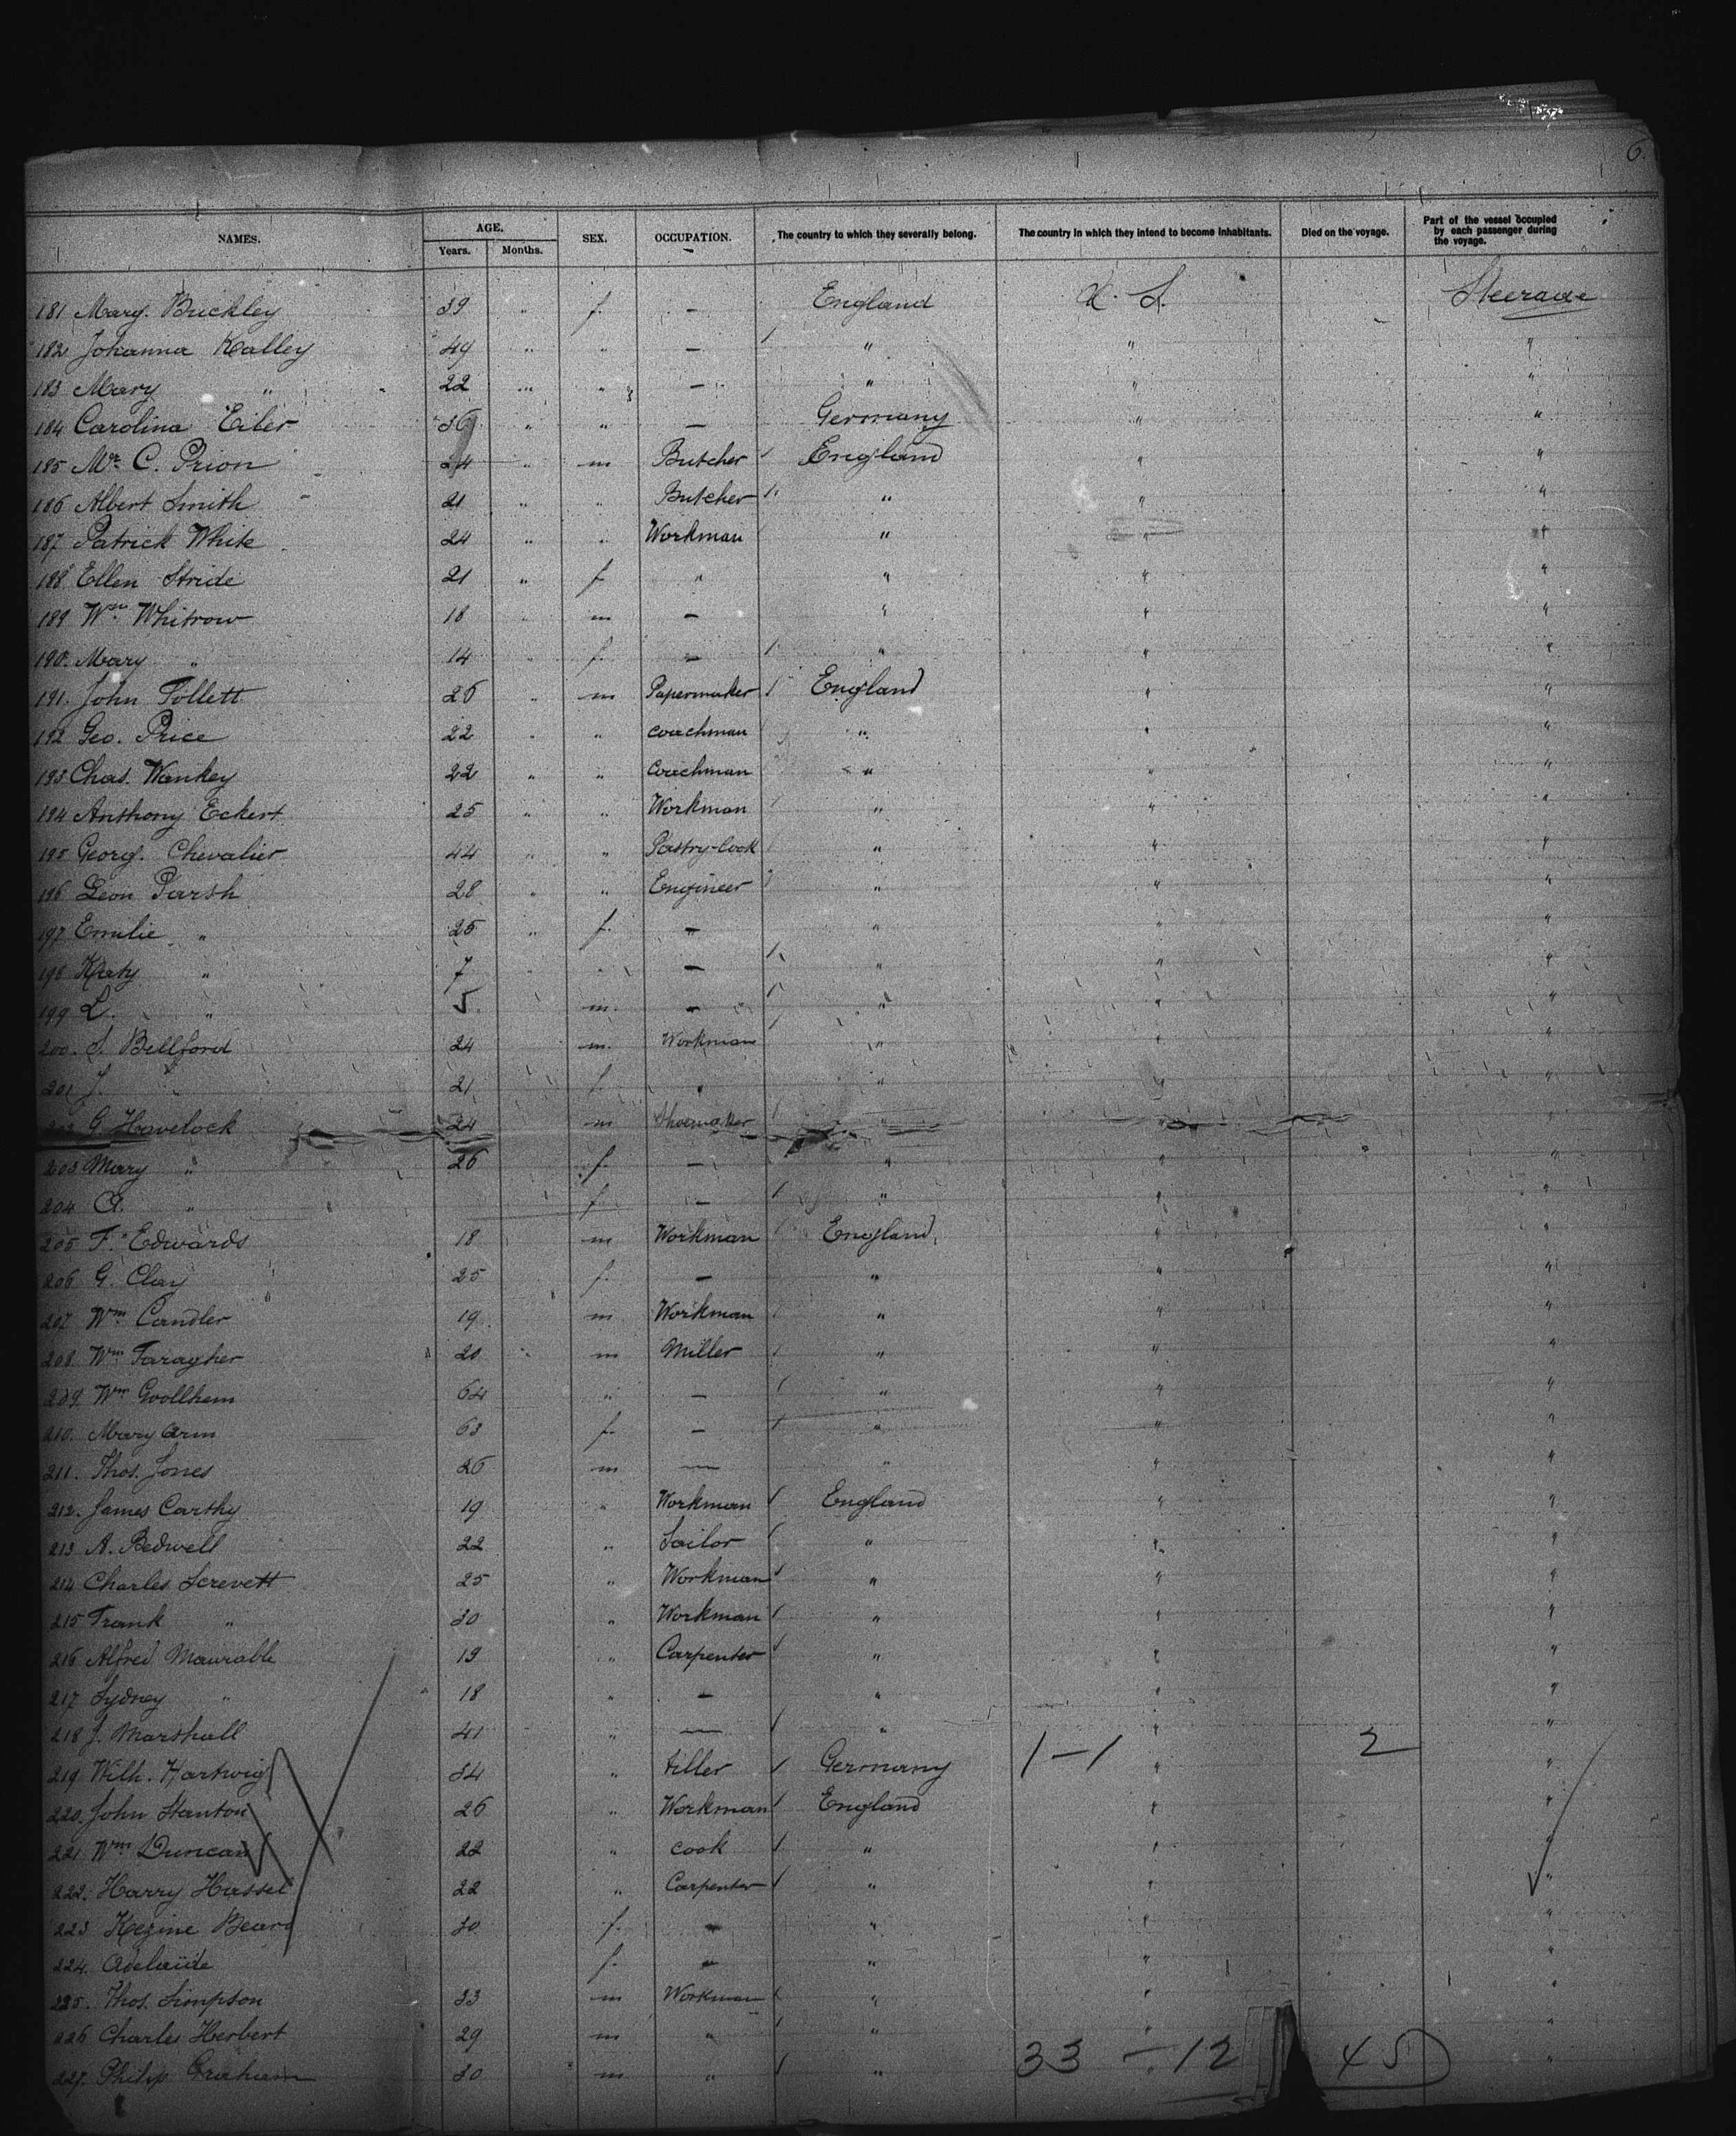 6.
NAMES. AGE. Years. Months. SEX. OCCUPATION. The country to which they severally belong. The country in which they intend to become inhabitants. Died on the voyage. Part of the vessel occupied by each passenger during the voyage.
181 Marg. Buckley 39 " f. — England U. S. Steerage
182 Johanna Kalley 49 " " — " " "
183 Mary " 22 " " — " " "
184 Carolina Eiler 36 " " — Germany " "
185 Mr. C. Prion 24 " m Butcher England " "
186 Albert Smith 21 " " Butcher " " "
187 Patrick White 24 " " Workman " " "
188 Ellen Stride 21 " f " " " "
189 Wm. Whitrow 18 " m — " " "
190. Mary " 14 " f. — " " "
191. John Follett 26 " m Papermaker England " "
192 Geo. Price 22 " " coachman " " "
193 Chas. Wankey 22 " " Coachman " " "
194 Anthony Eckert 25 " " Workman " " "
195 Georg. Chevalier 44 " " Pastry-cook " " "
196 Leon Parsh 28 " " Engineer " " "
197 Emilie " 25 " f. — " " "
198 Katy " 7 " " — " " "
199 L. " 5. m. — " " "
200. S. Bellford 24 m. Workman " " "
201 J. " 21 f. " " " "
G. Havelock 24 m Shoemaker " " "
203 Mary " 26 f. — " " "
204 A. " f — " " "
205 F. Edwards 18 m Workman England " "
206 G. Clay 25 f. — " " "
207. Wm. Candler 19 m Workman " " "
208. Wm. Faragher 20 " m Miller " " "
209. Wm. Goollhem 64 " — " " "
210. Mary Ann 63 f. — " " "
211. Thos. Jones 26 m — " " "
212. James Carthy 19 " Workman England " "
213 A. Bedwell 22 " Sailor " " "
214 Charles Screvett 25 " Workman " " "
215 Frank " 30 " Workman " " "
216 Alfred Maurable 19 " Carpenter " " "
217 Sydney " 18 " — " " "
218 J. Marshall 41 " — " " "
219 Wilh. Hartwig 34 " tiller Germany 1 — 1 " 2 "
220. John Stanton 26 " Workman England " "
221 Wm. Duncan 22 " cook " " "
222. Harry Hassel 22 " Carpenter " " "
223 Kezine Beard 30 f. — " " "
224. Adelaide f. — " " "
225. Thos. Simpson 33 m Workman " " "
226 Charles Herbert 29 m " " " "
227. Philip Graham 30 m " " 33 — 12 45 "